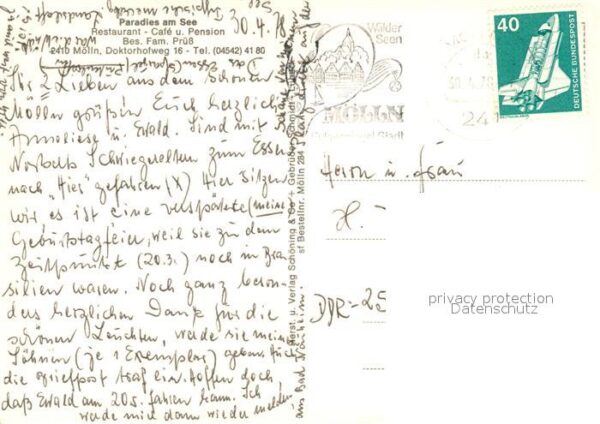 Paradies am See
Restaurant - Café u. Pension
Bes. Fam. Prüß
2410 Mölln, Doktorhofweg 16 - Tel. (04542) 41 80
30.4.78
Ihr 2 Lieben aus dem schönen
Mölln grüßen Euch herzlichst
Anneliese u. Ewald. Sind mit
Norberts Schwiegereltern zum Essen
nach "Hier" gefahren (X) Hier sitzen
wir es ist eine verspätete (meine
Geburtstagfeier, weil sie zu dem
Zeitpunkt (20.3.) noch in Bra-
silien waren. Noch ganz beson-
ders herzlichen Dank für die
schönen Leuchten, werde sie meinen
Söhnen (je 1 Exemplar) geben. Auch
die Briefpost traf ein. Hoffen doch
daß Ewald am 20.5. fahren kann. Ich
werde mich dann wieder melden
aus Bad Nauheim.
Herst. u. Verlag Schöning & Co + Gebrüder Schmidt
Bestellnr. Mölln 284
Wilder
Seen
MÖLLN
30.4.78
241
40
DEUTSCHE BUNDESPOST
Herrn u. Frau
H.
DDR-25
privacy protection
Datenschutz